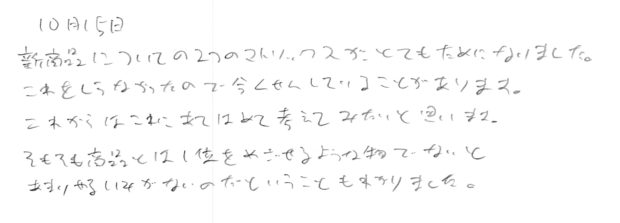 10月15日
新商品についての2つのマトリックスがとてもためになりました。
これをしらなかったので今くせんしていることがあります。
これからはこれにあてはめて考えてみたいと思います。
そもそも商品とは1位をめざせるような物でないと
あまりやるいみがないのだということもわかりました。